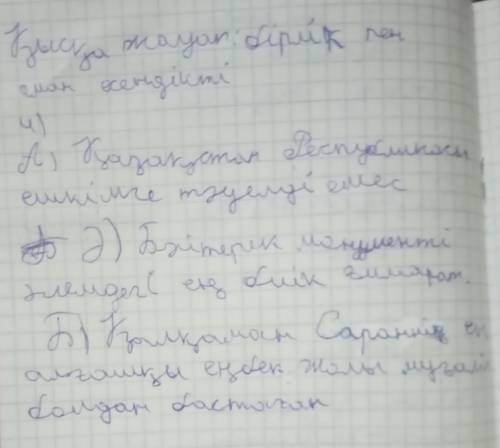 Қысқа жауап: бірлік пен
аман есендікті
4)
А) Қазақстан Республикасы
ешкімге тәуелді емес
Ә) Бәйтерек монументі
әлемдегі ең биік ғимарат.
Б) Қалқаман Саранның ең
алғашқы еңбек жолы мұғалі
болдан бастаған